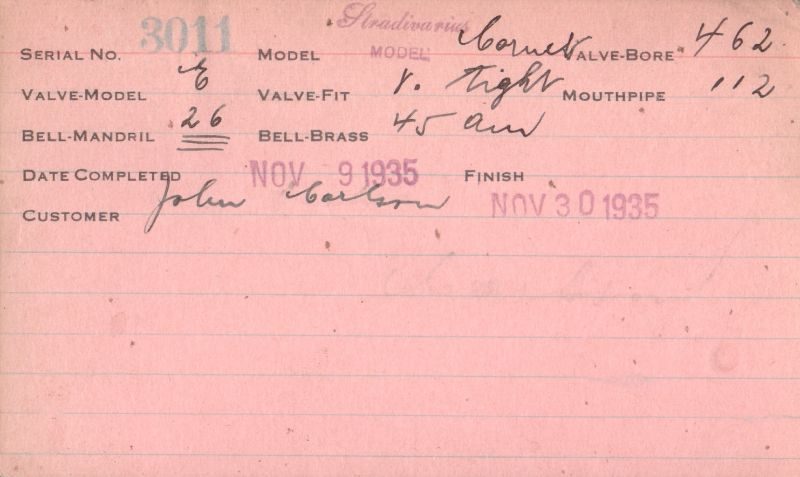 Stradivarius
SERIAL NO. 3011 MODEL MODEL Cornet VALVE-BORE 462
VALVE-MODEL E VALVE-FIT V. tight MOUTHPIPE 112
BELL-MANDRIL 26 BELL-BRASS 45 am
DATE COMPLETED NOV 9 1935 FINISH
CUSTOMER John Carlson NOV 30 1935